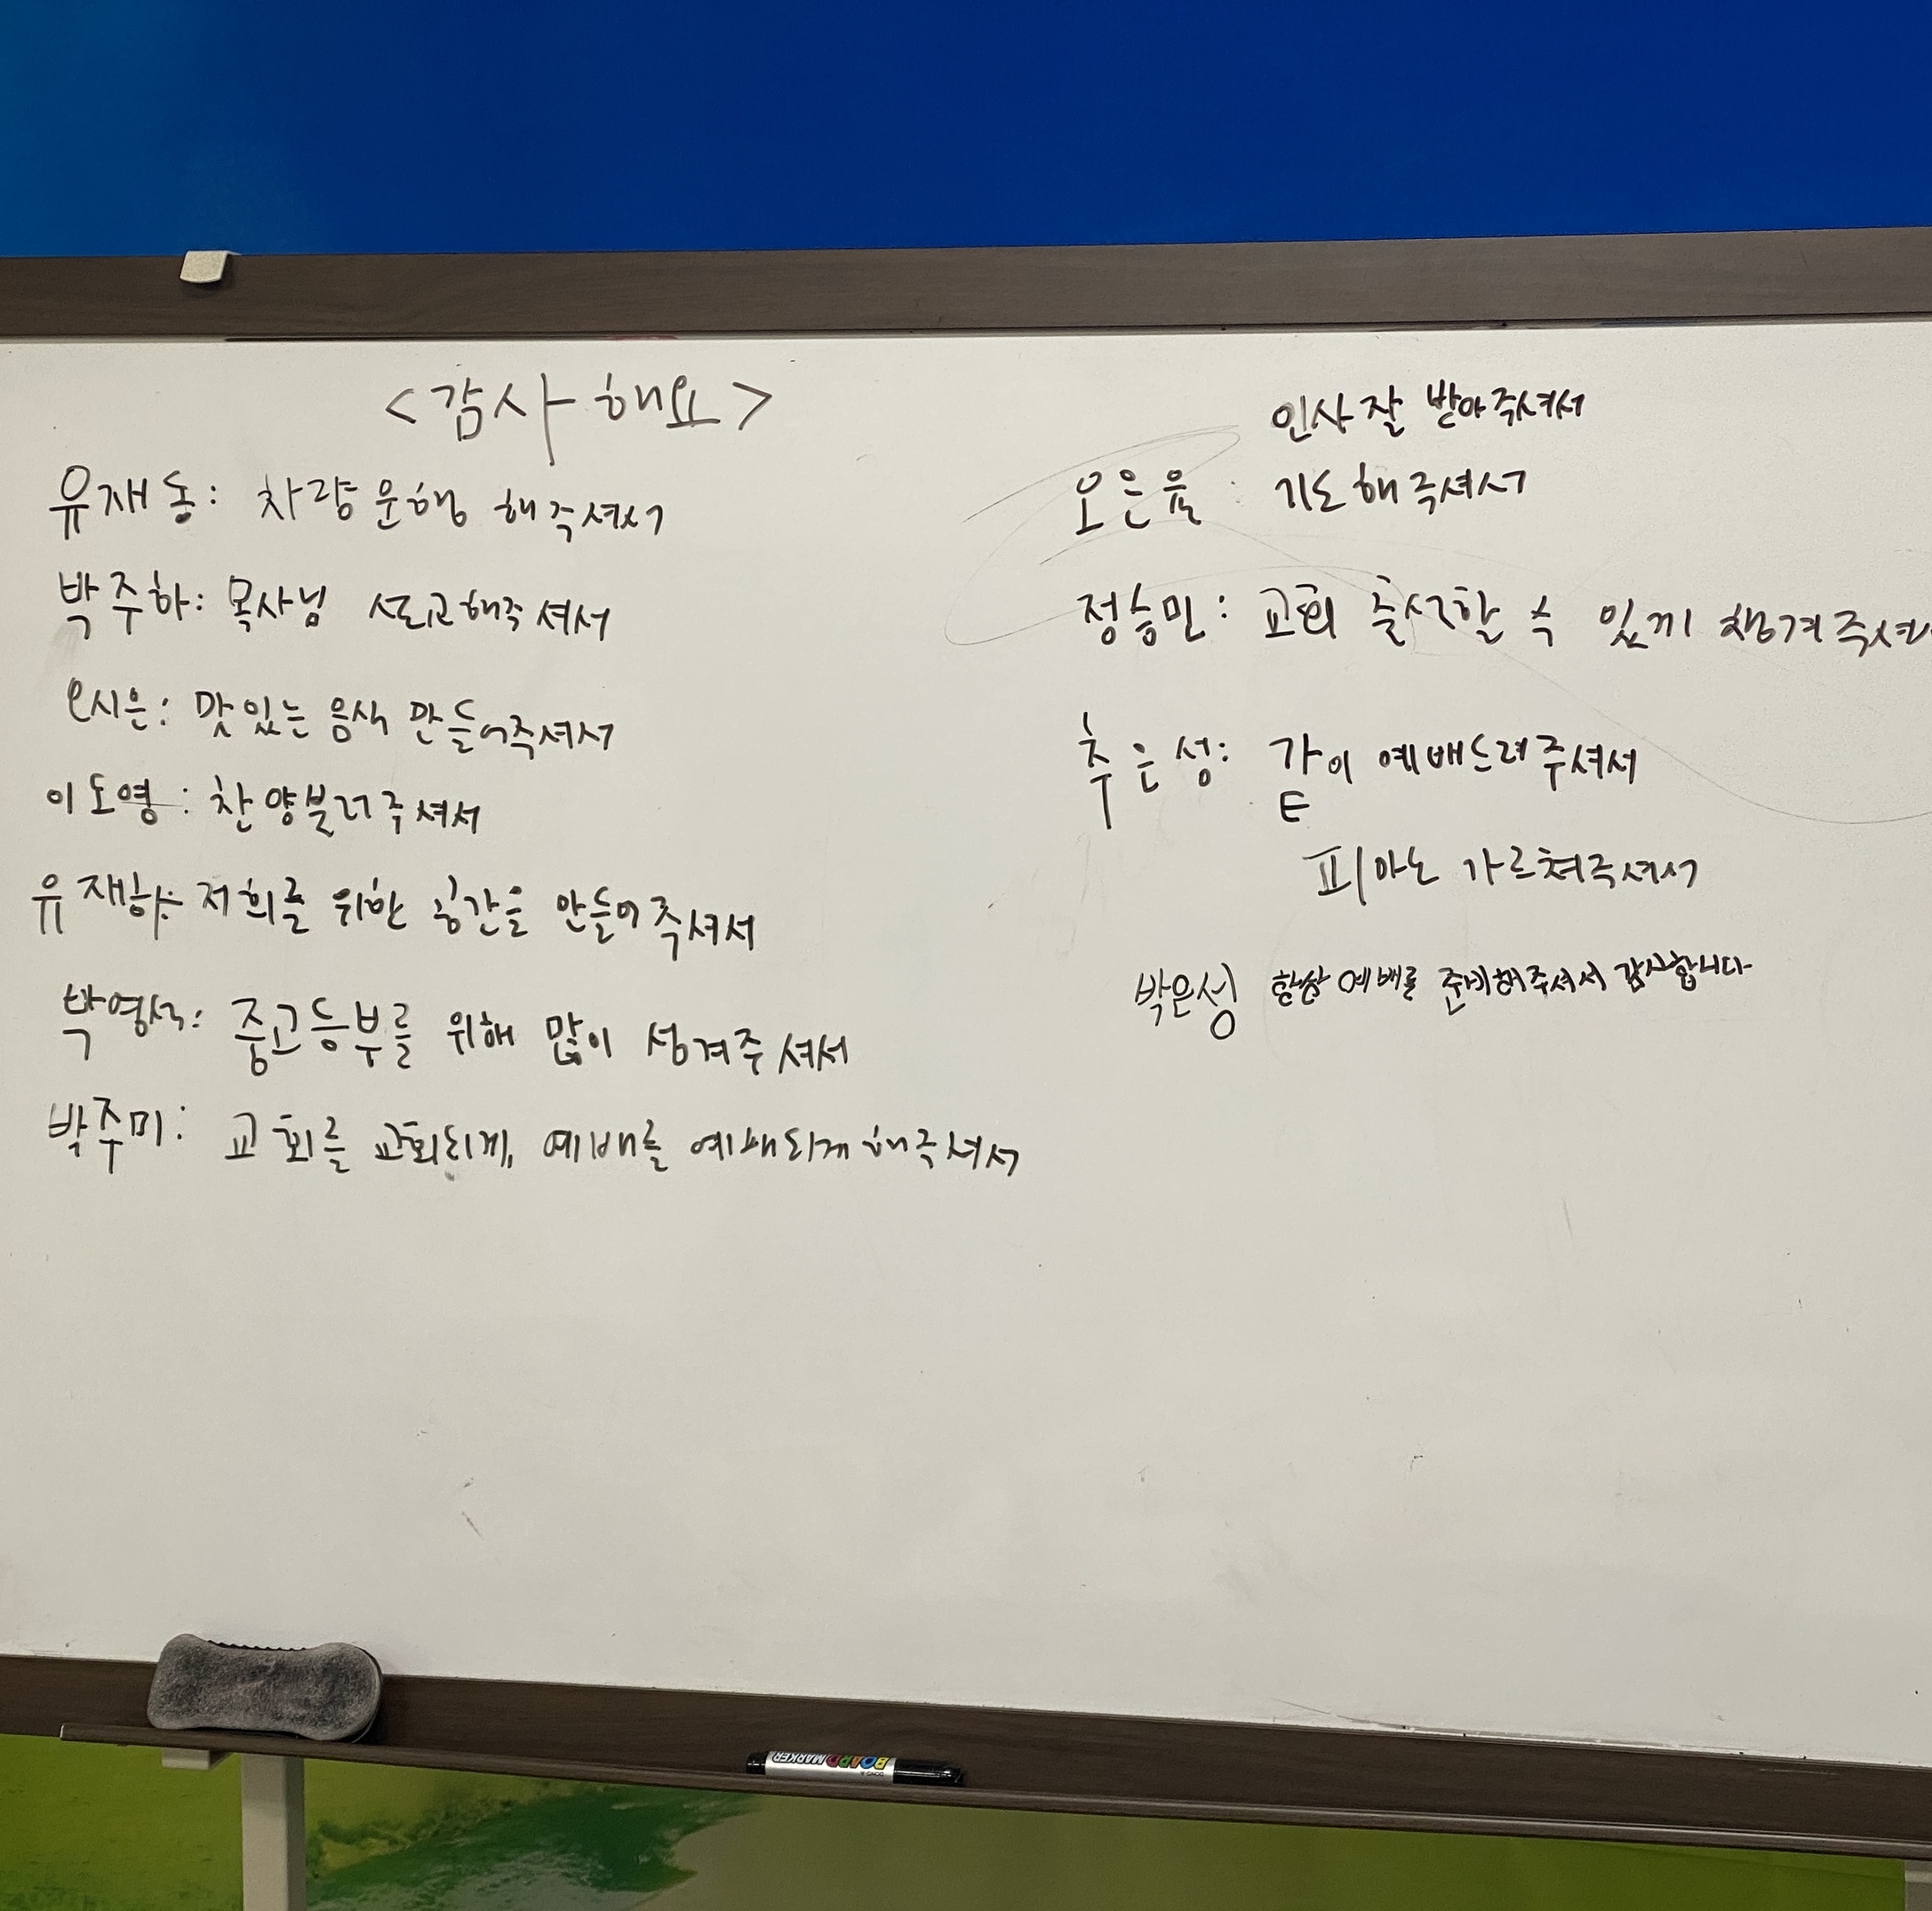 <감사해요>
유재동: 차량운행 해주셔서
박주하: 목사님 설교해주셔서
오시은: 맛있는 음식 만들어주셔서
이도영: 찬양불러주셔서
유재하: 저희를 위한 공간을 만들어주셔서
박영서: 중고등부를 위해 많이 섬겨주셔서
박주미: 교회를 교회되게, 예배를 예배되게 해주셔서
인사잘 받아주셔서
오은율: 기도해주셔서
정승민: 교회 출석할 수 있게 챙겨주셔
추은성: 같이 예배드려주셔서
피아노 가르쳐주셔서
박은성 항상 예배를 준비해주셔서 감사합니다
DONG-A
BOARD MARKER